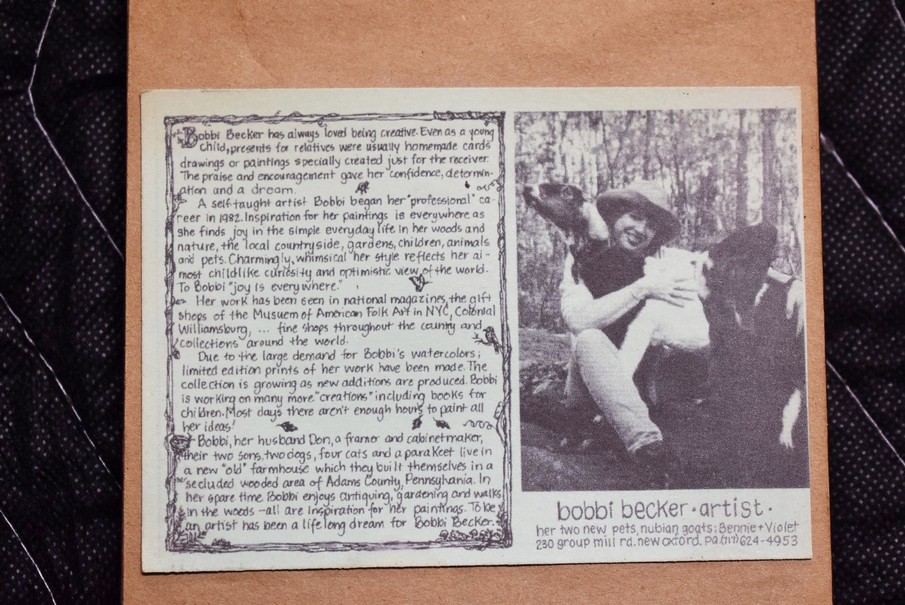 Bobbi Becker has always loved being creative. Even as a young
child, presents for relatives were usually homemade cards
drawings or paintings specially created just for the receiver.
The praise and encouragement gave her confidence, determin-
ation and a dream.
A self-taught artist Bobbi began her "professional" ca-
reer in 1982. Inspiration for her paintings is everywhere as
she finds joy in the simple everyday life in her woods and
nature, the local countryside, gardens, children, animals
and pets. Charmingly whimsical her style reflects her al-
most childlike curiosity and optimistic view of the world.
To Bobbi "joy is everywhere."
Her work has been seen in national magazines, the gift
shops of the Musuem of American Folk Art in NYC, Colonial
Williamsburg, ... fine shops throughout the country and
collections around the world.
Due to the large demand for Bobbi's watercolors;
limited edition prints of her work have been made. The
collection is growing as new additions are produced. Bobbi
is working on many more "creations" including books for
children. Most days there aren't enough hours to paint all
her ideas!
Bobbi, her husband Don, a framer and cabinetmaker,
their two sons, two dogs, four cats and a parakeet live in
a new "old" farmhouse which they built themselves in a
secluded wooded area of Adams County, Pennsylvania. In
her spare time Bobbi enjoys antiquing, gardening and walks
in the woods - all are inspiration for her paintings. To be
an artist has been a life long dream for Bobbi Becker.
bobbi becker • artist •
her two new pets, nubian goats; Bennie + Violet
230 group mill rd. new oxford, pa (717) 624-4953